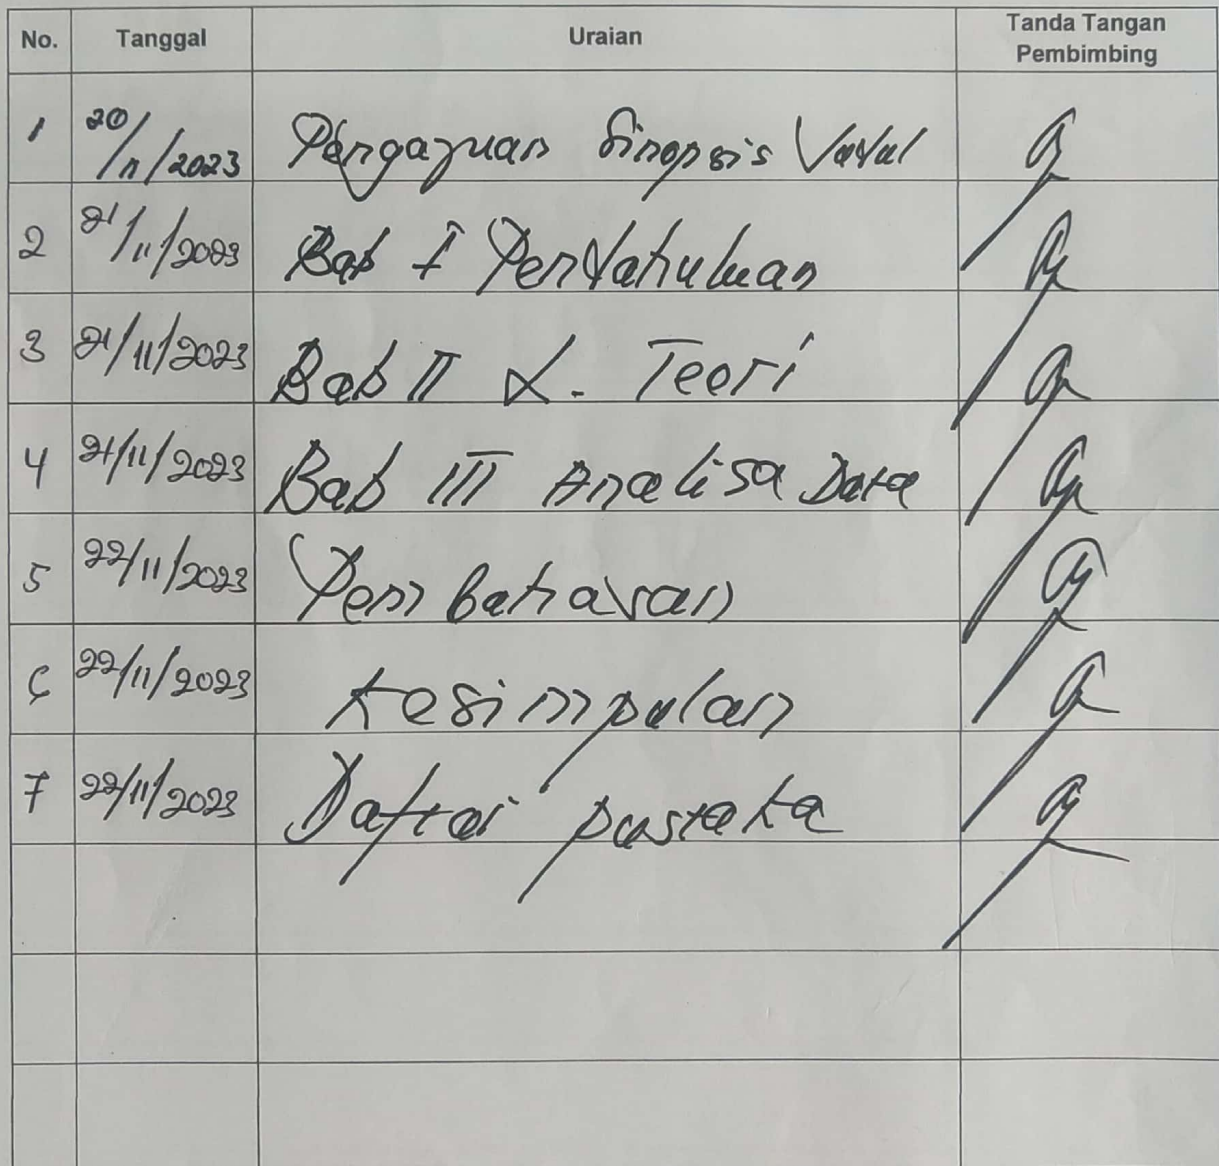 No. Tanggal Uraian Tanda Tangan Pembimbing
1 20/11/2023 Pengajuan Sinopsis
2 21/11/2023 Bab I Pendahuluan
3 21/11/2023 Bab II L. Teori
4 21/11/2023 Bab III Analisa Data
5 22/11/2023 Pembahasan
6 22/11/2023 Kesimpulan
7 22/11/2023 Daftar pustaka